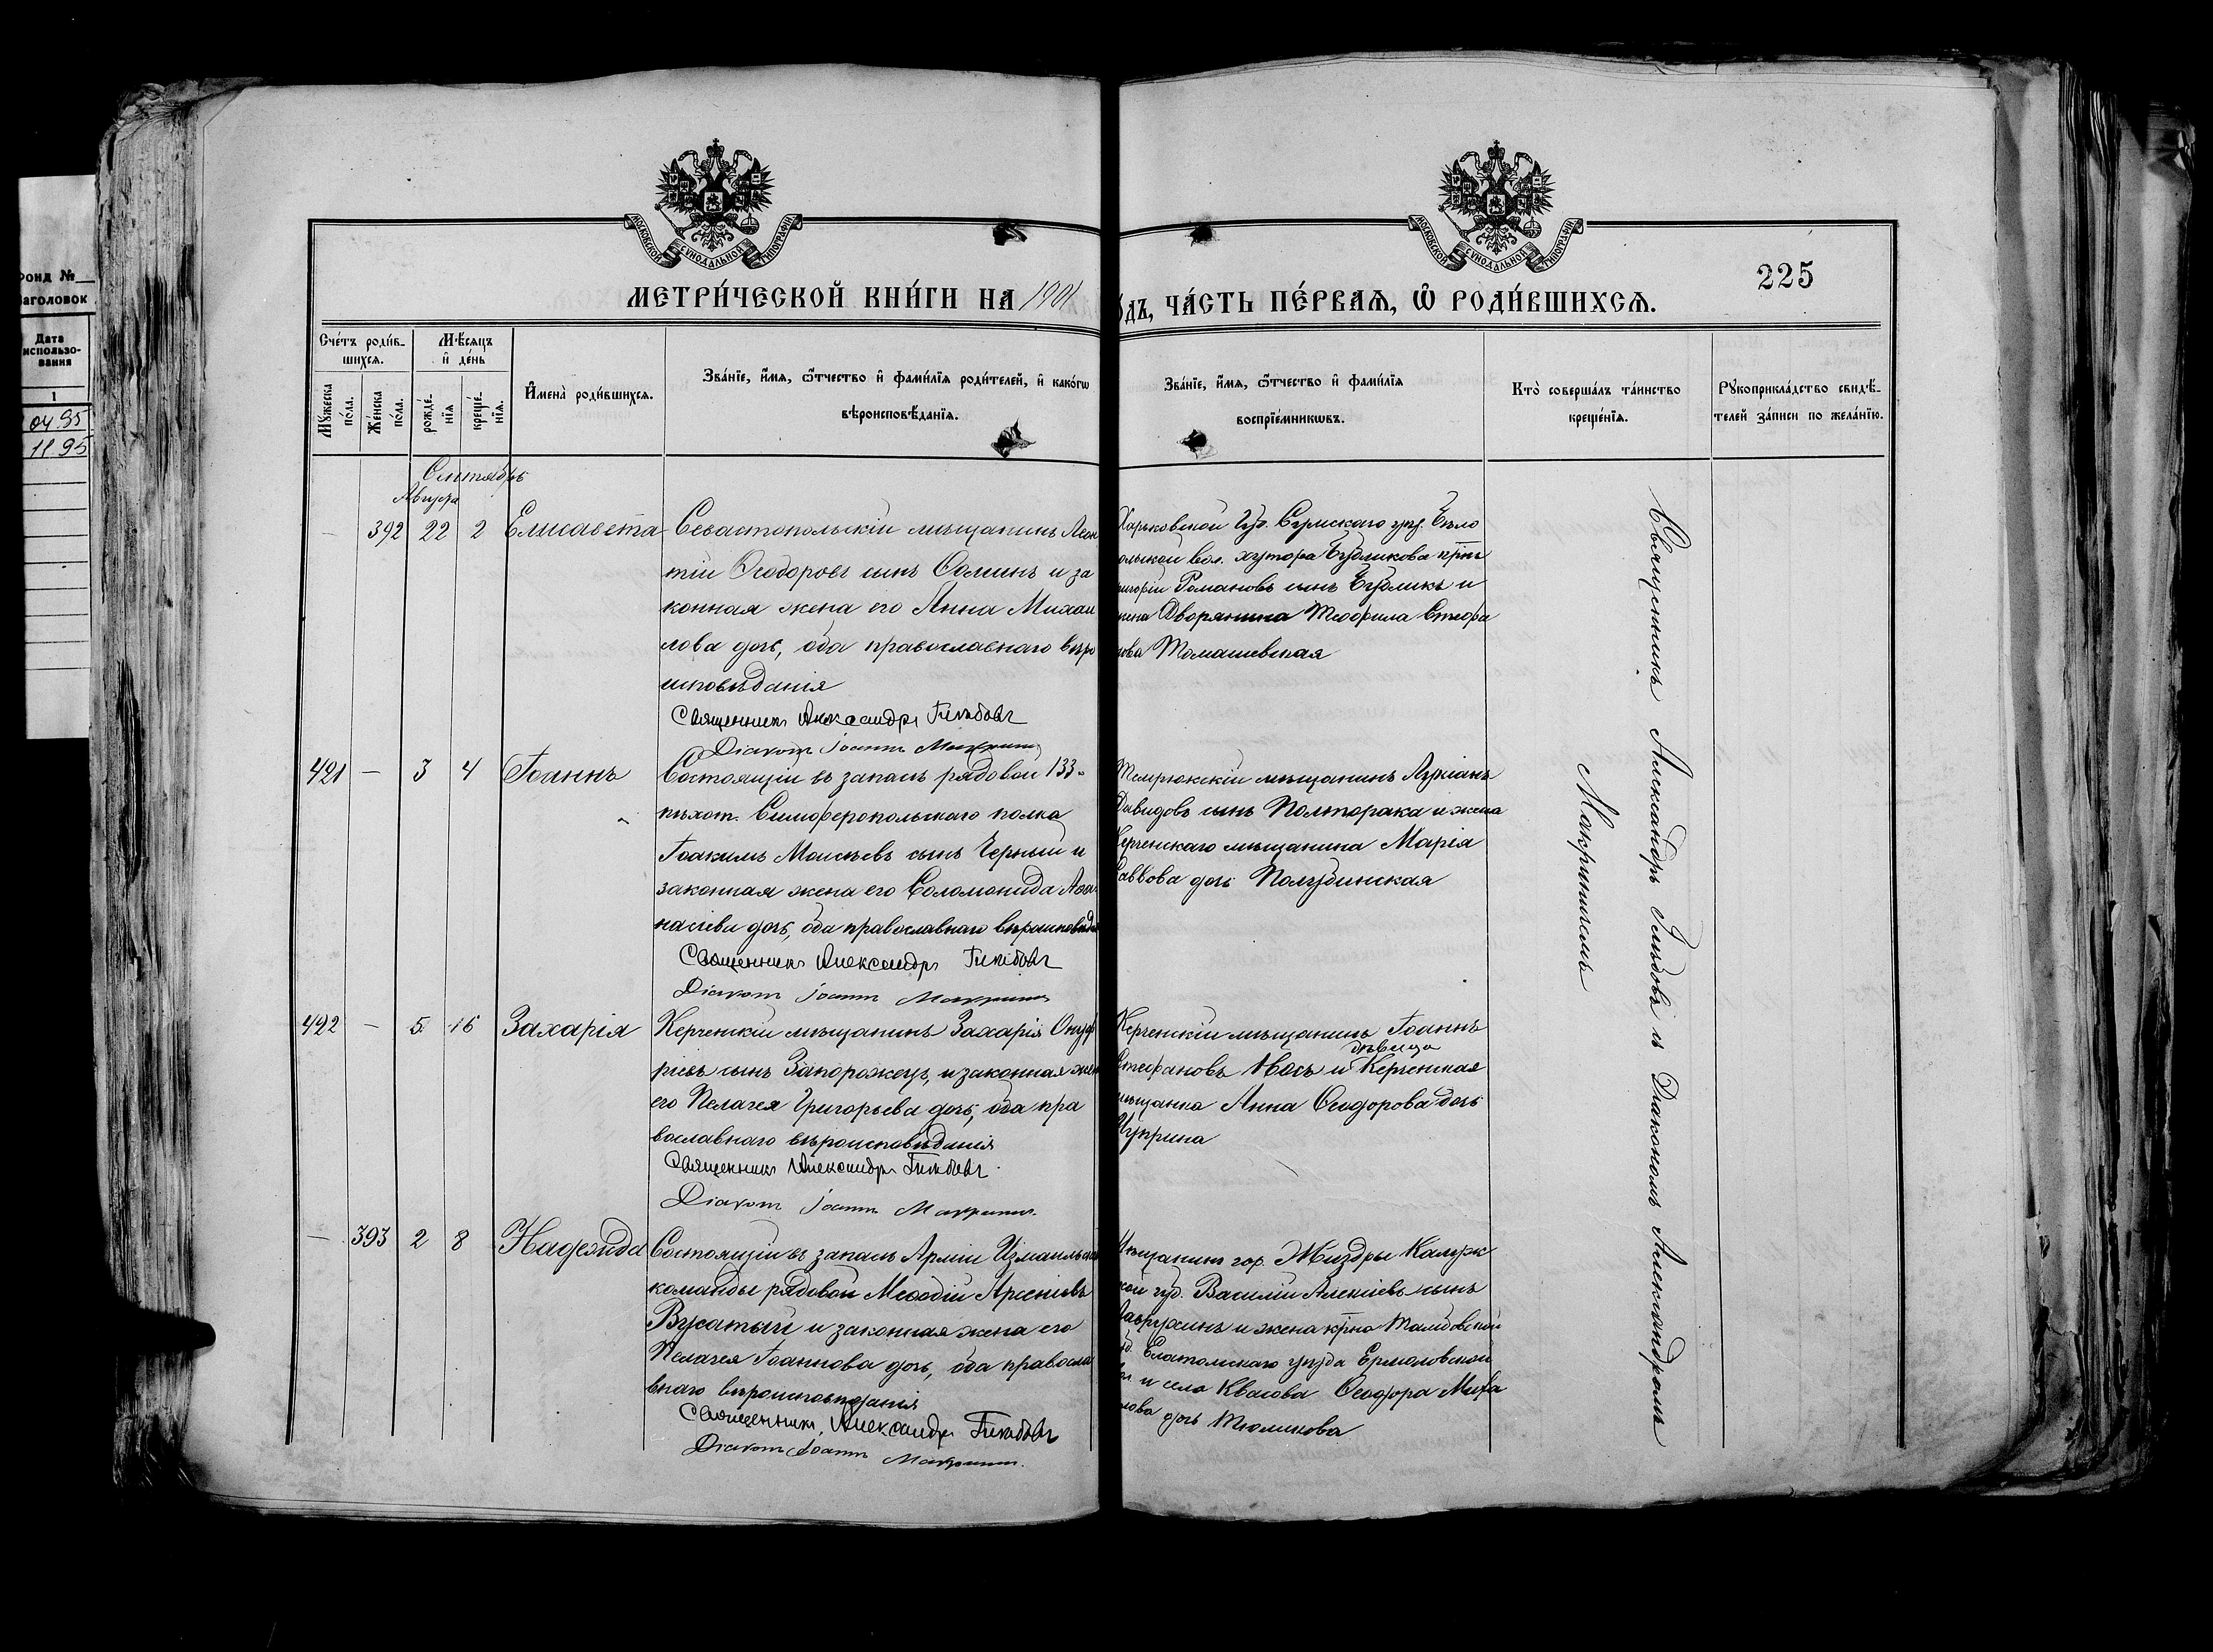 Фонд №
Заголовок
Дата
использо-
вания
1
04 95
11 95
МОСКОВСКОЙ СѴНОДАЛЬНОЙ ТИПОГРАФІИ
МОСКОВСКОЙ СѴНОДАЛЬНОЙ ТИПОГРАФІИ
225
МЕТРИ́ЧЕСКОЙ КНИ́ГИ НА 1901
ОДЪ, ЧА́СТЬ ПЕ́РВАЯ, Ѽ РОДИ́ВШИХСЯ.
Сче́тъ роди́в-
шихся.
Мѣ́сяцъ
и де́нь
Мꙋ́жеска
по́ла.
Же́нска
по́ла.
рожде́-
нїя
креще́-
нїя.
Имена̀ роди́вшихся.
Зва́нїе, и́мя, ѻ҆́тчество и фами́лїя роди́телей, и како́гѡ
вѣроисповѣ́данїя.
Зва́нїе, и́мя, ѻ҆́тчество и фами́лїя
воспрїе́мникѡвъ.
Кто̀ соверша́лъ та́инство
креще́нїя.
Рꙋкоприкла́дство свидѣ́-
телей за́писи по жела́нїю.
Сентябрь
Августа
— 392 22 2 Елисавета
Севастопольскій мѣщанинъ Леон
тій Ѳеодоровъ сынъ Ѳоминъ и за
конная жена его Анна Михаи
лова дочь, оба православнаго вѣро
исповѣданія
Священникъ Александръ Гильбовъ
Діаконъ Іоаннъ Макринич
Харьковской Губ. Сумскаго уѣз. Бѣло
польской вол. хутора Бубликова кр-нъ
Григорій Романовъ сынъ Бубликъ и
жена Дворянина Теофила Стефа
нова Томашевская
421 — 3 4 Іоаннъ
Состоящій въ запасѣ рядовой 133-
пѣхот. Симферопольскаго полка
Іоакимъ Моисѣевъ сынъ Черный и
законная жена его Соломонида Аѳа
насіева дочь, оба православнаго вѣроисповѣда
Священникъ Александръ Гильбовъ
Діаконъ Іоаннъ Макринич
Темрюкскій мѣщанинъ Лукіанъ
Давидовъ сынъ Полторака и жена
Керченскаго мѣщанина Марія
Саввова дочь Полубинская
422 — 5 16 Захарія
Керченскій мѣщанинъ Захарія Онуф
ріевъ сынъ Запорожецъ, и законная жен
его Пелагея Григорьева дочь, оба пра
вославнаго вѣроисповѣданія
Священникъ Александръ Гильбовъ
Діаконъ Іоаннъ Макринич
Керченскій мѣщанинъ Іоаннъ
дѣвица
Стефановъ Носъ и Керченская
мѣщанка Анна Ѳеодорова дочь
Чуприна
— 393 2 8 Надежда
Состоящій въ запасѣ Арміи Измаильской
команды рядовой Меѳодій Арсеніевъ
Вусатый и законная жена его
Пелагея Іоаннова дочь, оба правосла
внаго вѣроисповѣданія
Священникъ Александръ Гильбовъ
Діаконъ Іоаннъ Макринич
Мѣщанинъ гор. Жиздры Калуж
ской губ. Василій Алексіевъ сынъ
Лаврухинъ и жена кр-на Тамбовской
губ. Елатомскаго уѣзда Ермоловской
и села Квасова Ѳеодора Миха
лова дочь Тюликова
Священникъ Александръ Гильбовъ и Діакономъ Александромъ
Макриничемъ